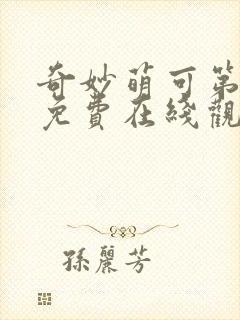 奇妙萌可第
免費在綫觀
孫麗芳